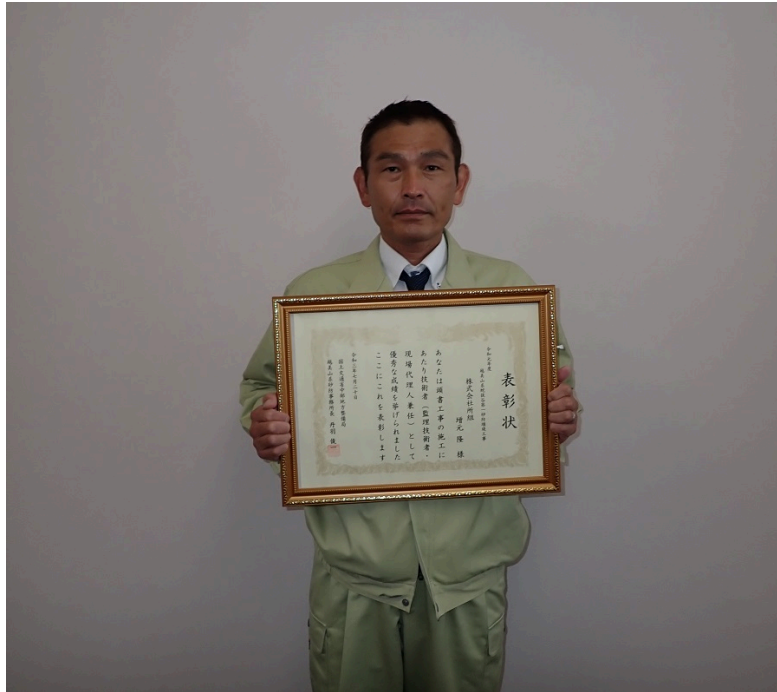 表彰状
令和元年度
株式会社所組
増元 隆 様
あなたは頭書工事の施工に
あたり技術者(監理技術者・
現場代理人兼任)として
優秀な成績を挙げられました
ここにこれを表彰します
令和二年七月二十日
国土交通省中部地方整備局
越美山系砂防事務所長 丹羽 俊一